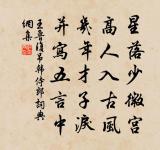 星落少微宮
高人入古風
幾年才子淚
并寫五言中
王魯復吊韓侍郎詞典
網集